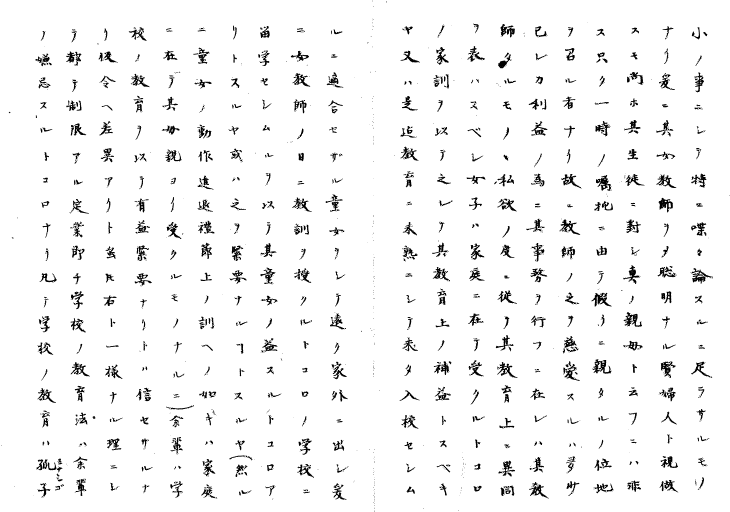 小ノ事ニシテ特ニ喋々論スルニ足ラサルモノ
ナリ爰ニ其女教師ヲ聡明ナル賢婦人ト視做
スモ尚ホ其生徒ニ対シ真ノ親母ト云フニハ非
ス只タ一時ノ嘱托ニ由テ仮リニ親タルノ位地
ヲ占ル者ナリ故ニ教師ノ之ヲ慈愛スルハ多少
已レカ利益ノ為ニ其事務ヲ行フニ在レハ其教
師タルモノヽ私欲ノ度ニ従テ其教育上ニ異同
ヲ表ハスベシ女子ハ家庭ニ在テ受クルトコロ
ノ家訓ヲ以テ之レヲ其教育上ノ補益トスベキ
ヤ又ハ是迄教育ニ未熟ニシテ未タ入校セシム
ルニ適合セザル童女ヲシテ遠ク家外ニ出シ爰
ニ女教師ノ日ニ教訓ヲ授クルトコロノ学校ニ
留学セシムルヲ以テ其童女ノ益スルトコロア
リトスルヤ或ハ之ヲ緊要ナルヿトスルヤ(然ル
ニ童女ノ動作進退礼節上ノ訓ヘノ如キハ家庭
ニ在テ其母親ヨリ受クルモノナルニ)余輩ハ学
校ノ教育ヲ以テ有益緊要ナリトハ信セサルナ
リ仮令ヘ差異アリト雖𪜈右ト一様ナル理ニシ
テ都テ制限アル定業即チ学校ノ教育法ハ余輩
ノ嫌忌スルトコロナリ凡テ学校ノ教育ハ孤子